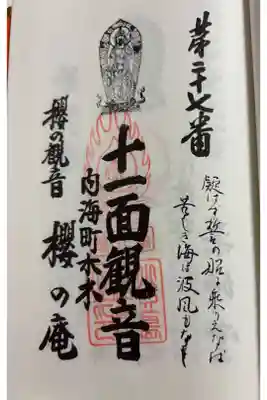 第二十七番
誓の船に乗りえなば
苦しき海は波風もなし
十一面観音
内海町木木
櫻の観音 櫻の庵